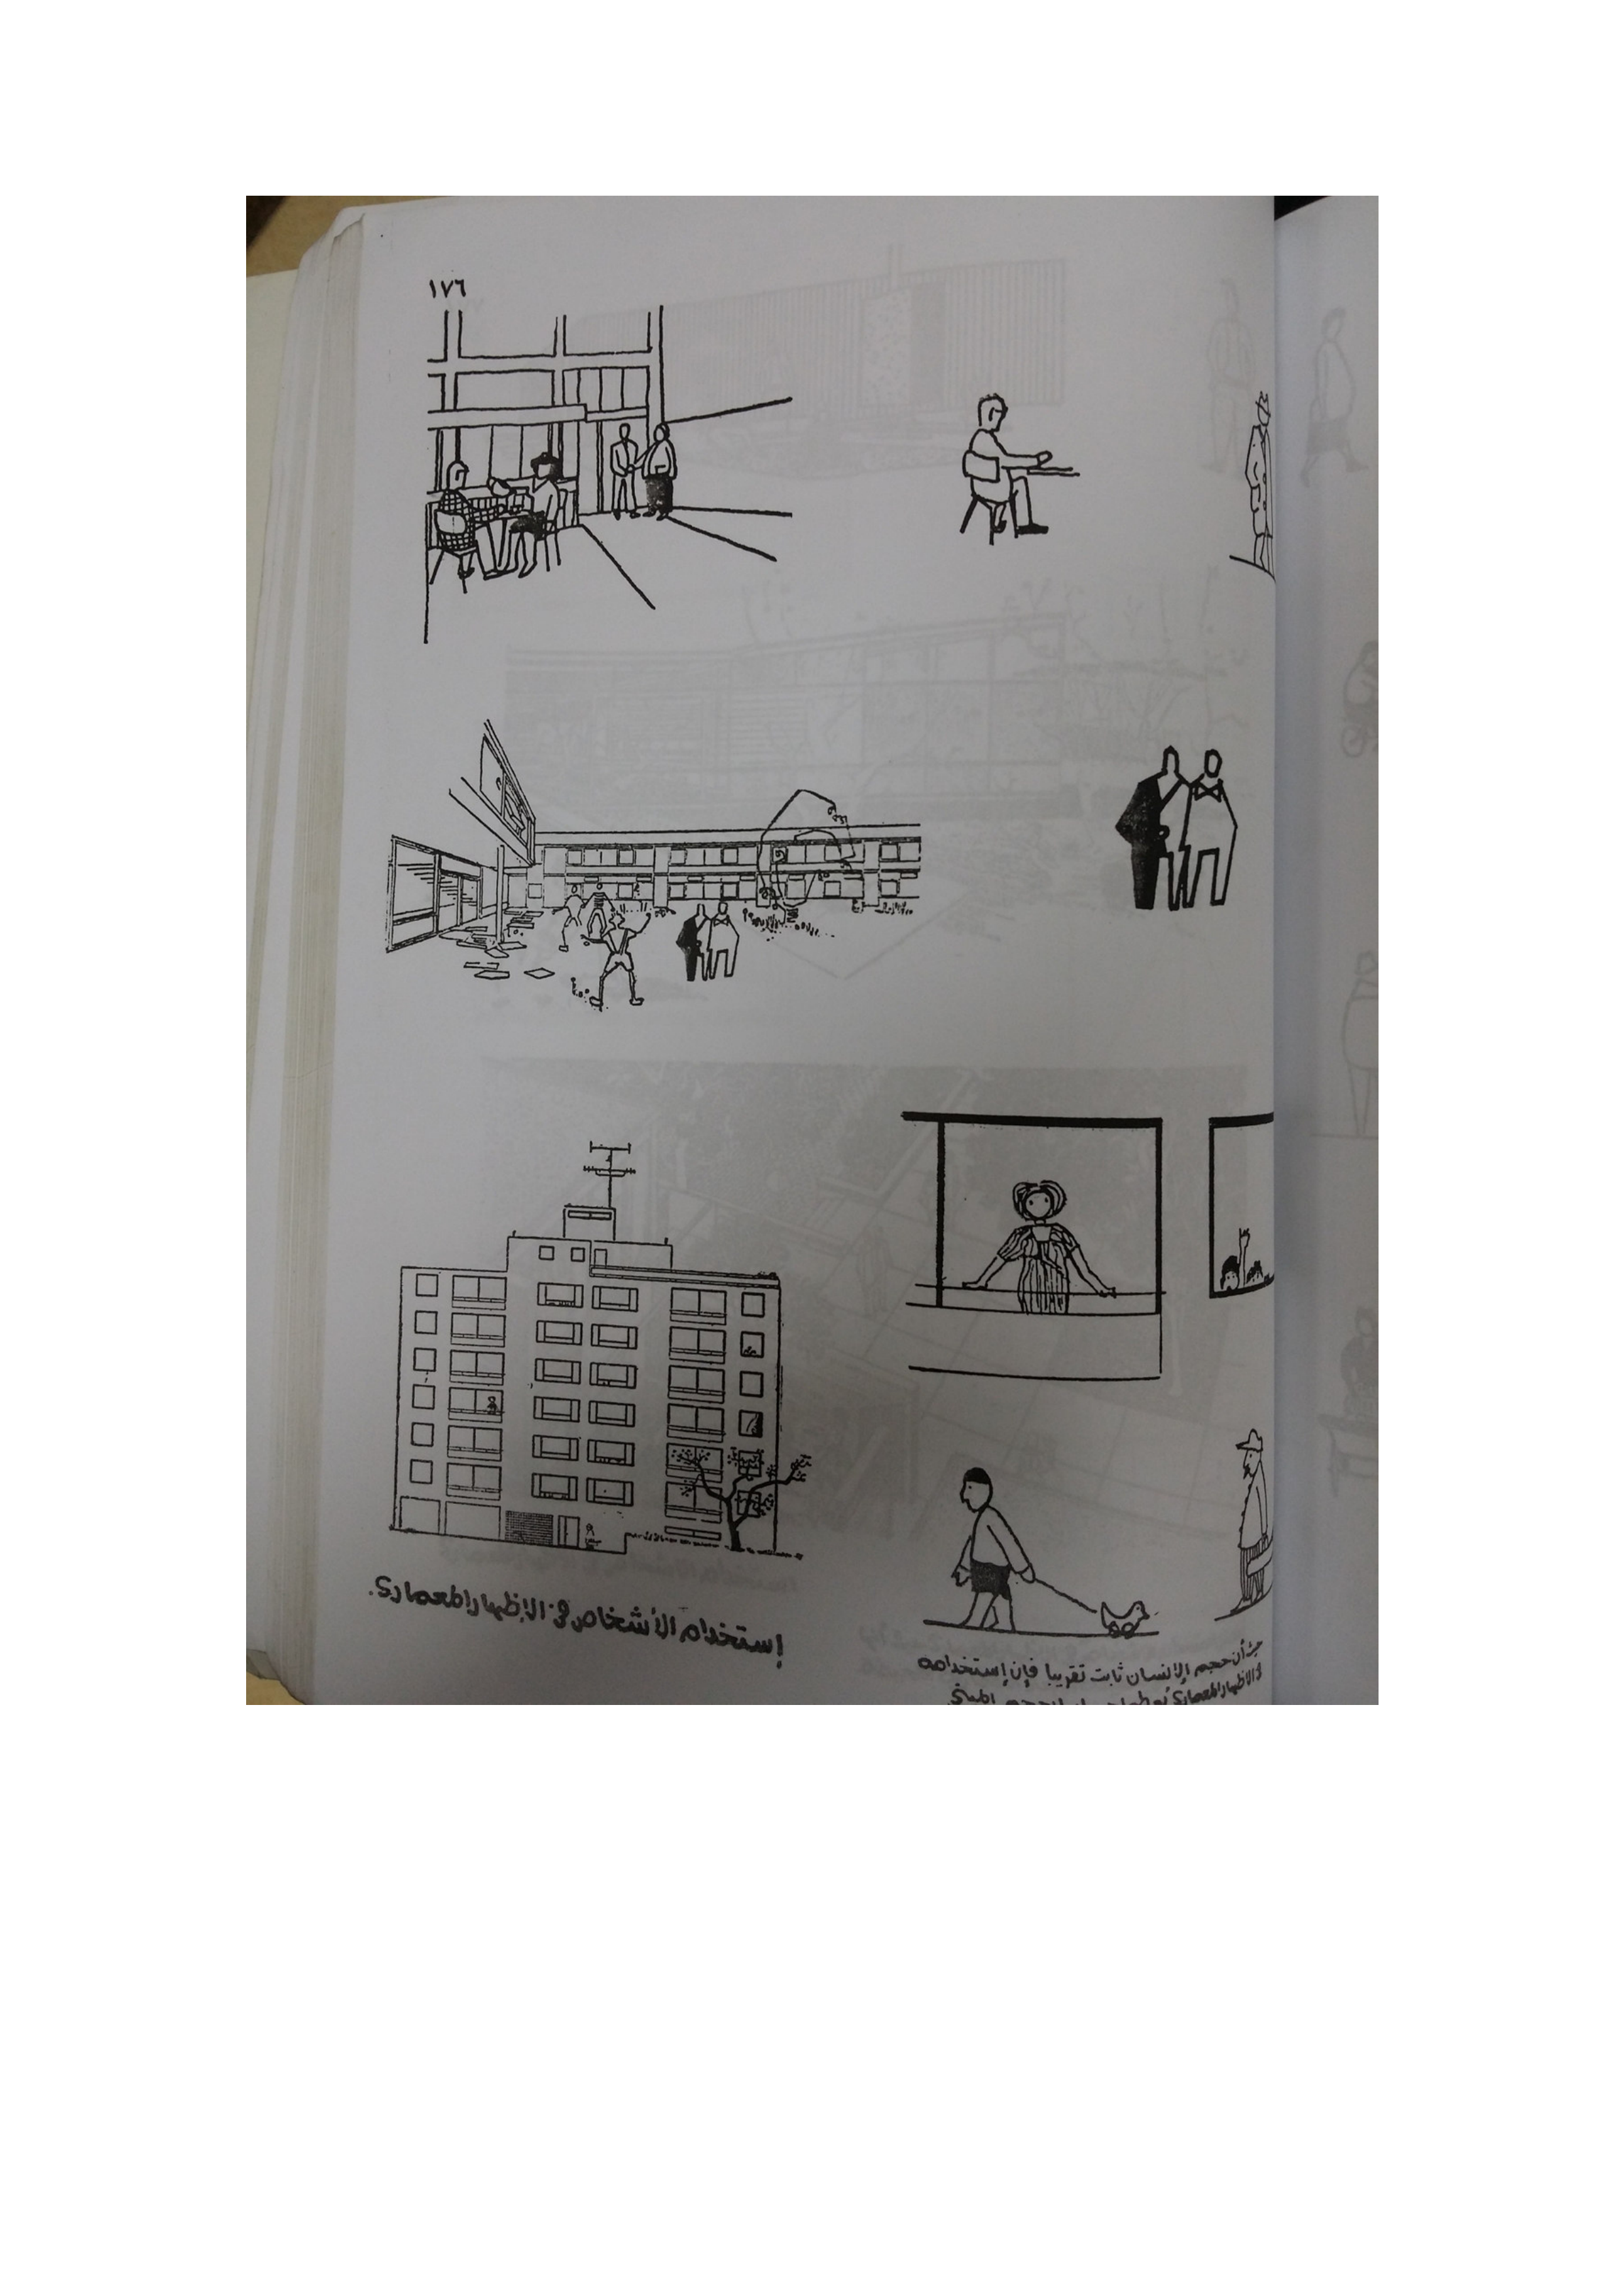 ١٧٦
إستخدام الأشخاص في الإظهار المعماري.
حيث أن حجم الإنسان ثابت تقريبا فإن إستخدامه
الإظهار المعماري حجم المبنى